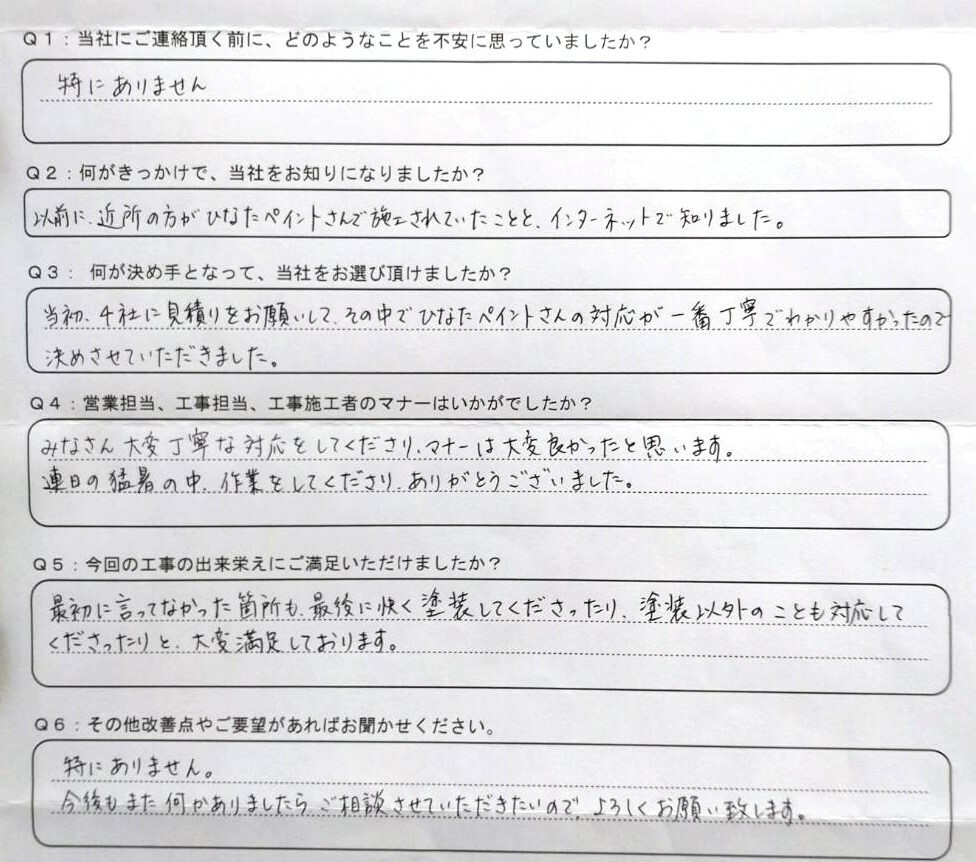 Q1：当社にご連絡頂く前に、どのようなことを不安に思っていましたか？
特にありません
Q2：何がきっかけで、当社をお知りになりましたか？
以前に、近所の方がひなたペイントさんで施工されていたことと、インターネットで知りました。
Q3： 何が決め手となって、当社をお選び頂けましたか？
当初、4社に見積りをお願いして、その中でひなたペイントさんの対応が一番丁寧でわかりやすかったので
決めさせていただきました。
Q4：営業担当、工事担当、工事施工者のマナーはいかがでしたか？
みなさん大変丁寧な対応をしてくださり、マナーは大変良かったと思います。
連日の猛暑の中、作業をしてくださり、ありがとうございました。
Q5：今回の工事の出来栄えにご満足いただけましたか？
最初に言ってなかった箇所も、最後に快く塗装してくださったり、塗装以外のことも対応して
くださったりと、大変満足しております。
Q6：その他改善点やご要望があればお聞かせください。
特にありません。
今後もまた何かありましたらご相談させていただきたいので、よろしくお願い致します。